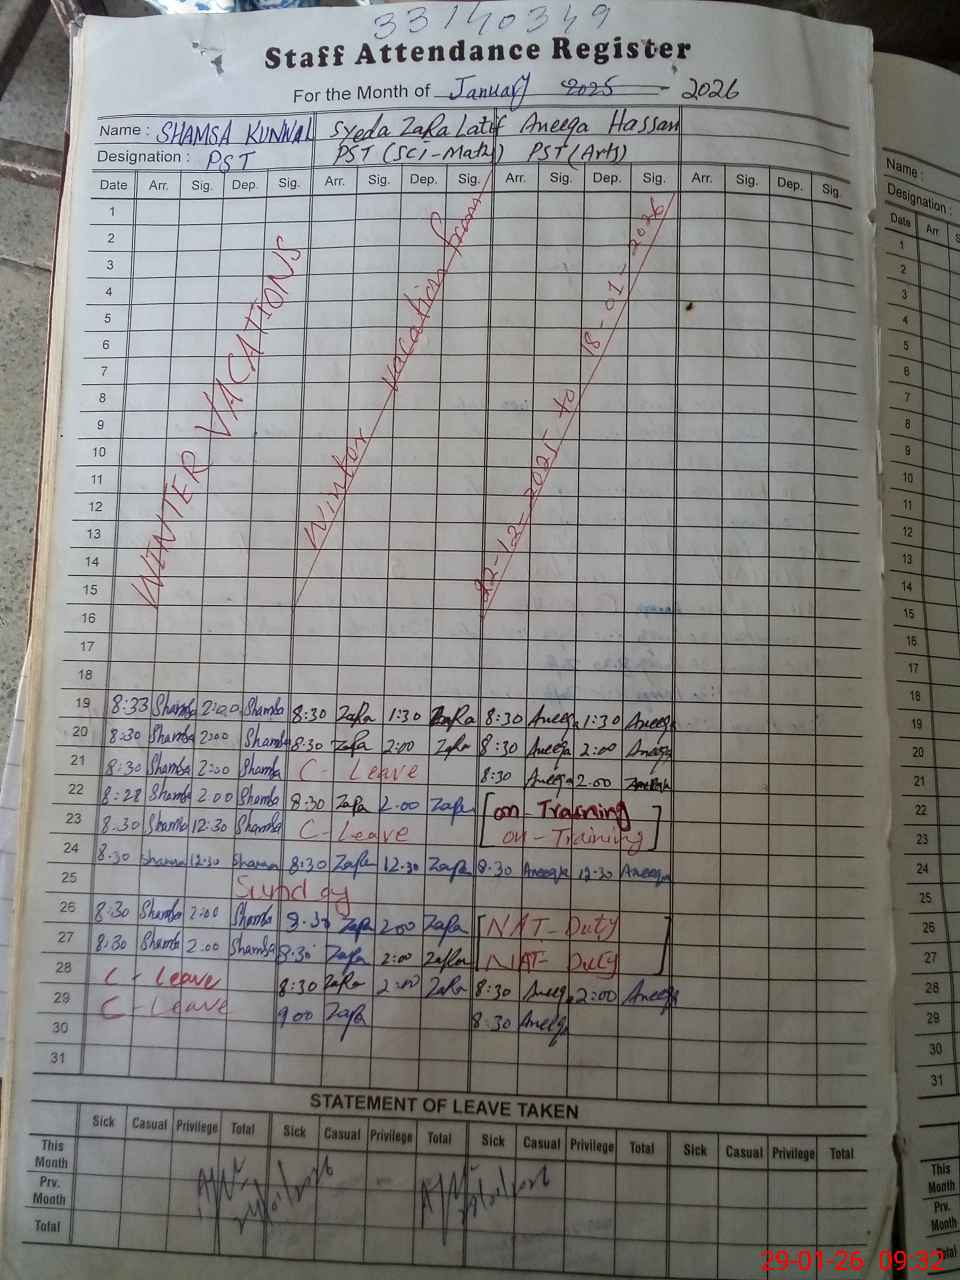 33140349
Staff Attendance Register
For the Month of January 2025 - 2026
Name : SHAMSA KUNWAL Syeda ZaRa Latif Aneeqa Hassan
Designation : PST PST (Sci-Math) PST (Arts)
Date Arr. Sig. Dep. Sig. Arr. Sig. Dep. Sig. Arr. Sig. Dep. Sig. Arr. Sig. Dep. Sig.
1
2
3
4
5
6
7
8
9
10
11
12
13
14
15
16
17
18
WINTER VACATIONS
Winter vacation from
22-12-2025 to 18-01-2026
19 8:33 Shamsa 2:00 Shamsa 8:30 ZaRa 1:30 ZaRa 8:30 Aneeqa 1:30 Aneeqa
20 8:30 Shamsa 2:00 Shamsa 8:30 ZaRa 2:00 ZaRa 8:30 Aneeqa 2:00 Aneeqa
21 8:30 Shamsa 2:00 Shamsa C - Leave 8:30 Aneeqa 2.00 Aneeqa
22 8:28 Shamsa 2.00 Shamsa 8:30 ZaRa 2.00 ZaRa on-Training
23 8:30 Shamsa 12:30 Shamsa C-Leave on-Training
24 8:30 Shamsa 12:30 Shamsa 8:30 ZaRa 12:30 ZaRa 8:30 Aneeqa 12:30 Aneeqa
25 Sunday
26 8:30 Shamsa 2:00 Shamsa 8:30 ZaRa 2:00 ZaRa NAT-Duty
27 8:30 Shamsa 2.00 Shamsa 8:30 ZaRa 2:00 ZaRa NAT- Duty
28 C - Leave 8:30 ZaRa 2:00 ZaRa 8:30 Aneeqa 2:00 Aneeqa
29 C - Leave 9:00 ZaRa 8:30 Aneeqa
30
31
STATEMENT OF LEAVE TAKEN
Sick Casual Privilege Total Sick Casual Privilege Total Sick Casual Privilege Total Sick Casual Privilege Total
This Month
Prv. Month
Total
Name :
Designation :
Date Arr S
1
2
3
4
5
6
7
8
9
10
11
12
13
14
15
16
17
18
19
20
21
22
23
24
25
26
27
28
29
30
31
This Month
Prv. Month
Total
29-01-26 09:32